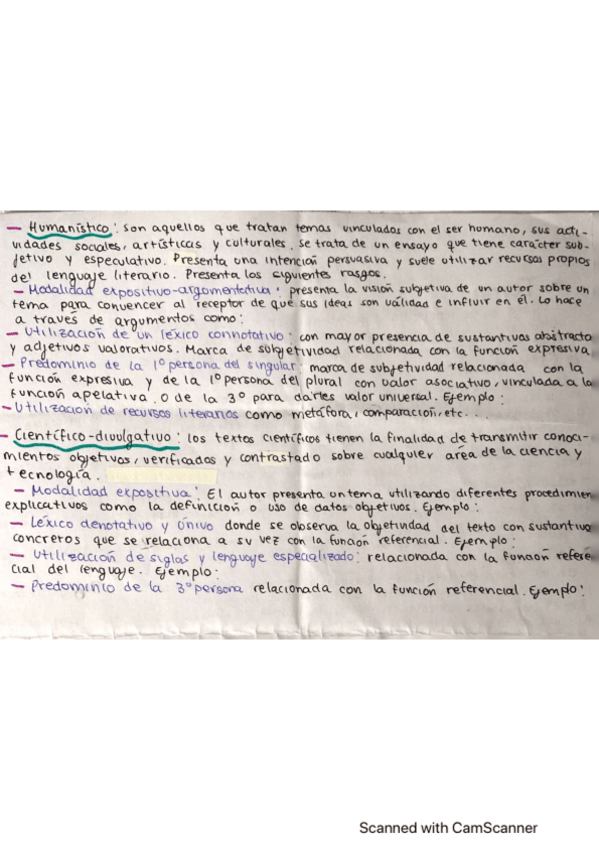 — Humanístico: son aquellos que tratan temas vinculados con el ser humano, sus acti-
vidades sociales, artísticas y culturales, se trata de un ensayo que tiene carácter sub-
jetivo y especulativo. Presenta una intención persuasiva y suele utilizar recursos propios
del lenguaje literario. Presenta los siguientes rasgos.
— Modalidad expositivo-argumentativa: presenta la visión subjetiva de un autor sobre un
tema para convencer al receptor de que sus ideas son válidad e influir en él. Lo hace
a través de argumentos como:
— Utilización de un léxico connotativo: con mayor presencia de sustantivas abstracto
y adjetivos valorativos. Marca de subjetividad relacionada con la función expresiva.
— Predominio de la 1º persona del singular: marca de subjetividad relacionada con la
función expresiva y de la 1º persona del plural con valor asociativo, vinculada a la
función apelativa. O de la 3º para darles valor universal. Ejemplo:
— Utilización de recursos literarios como metáfora, comparación, etc...
— Científico-divulgativo: los textos científicos tienen la finalidad de transmitir conoci-
mientos objetivos, verificados y contrastado sobre cualquier área de la ciencia y
tecnología.
— Modalidad expositiva: El autor presenta un tema utilizando diferentes procedimien
explicativos como la definición o uso de datos objetivos. Ejemplo:
— Léxico denotativo y único donde se observa la objetividad del texto con sustantivo
concretos que se relaciona a su vez con la función referencial. Ejemplo:
— Utilización de siglas y lenguaje especializado: relacionada con la función refere
cial del lenguaje. Ejemplo:
— Predominio de la 3º persona relacionada con la función referencial. Ejemplo:
Scanned with CamScanner